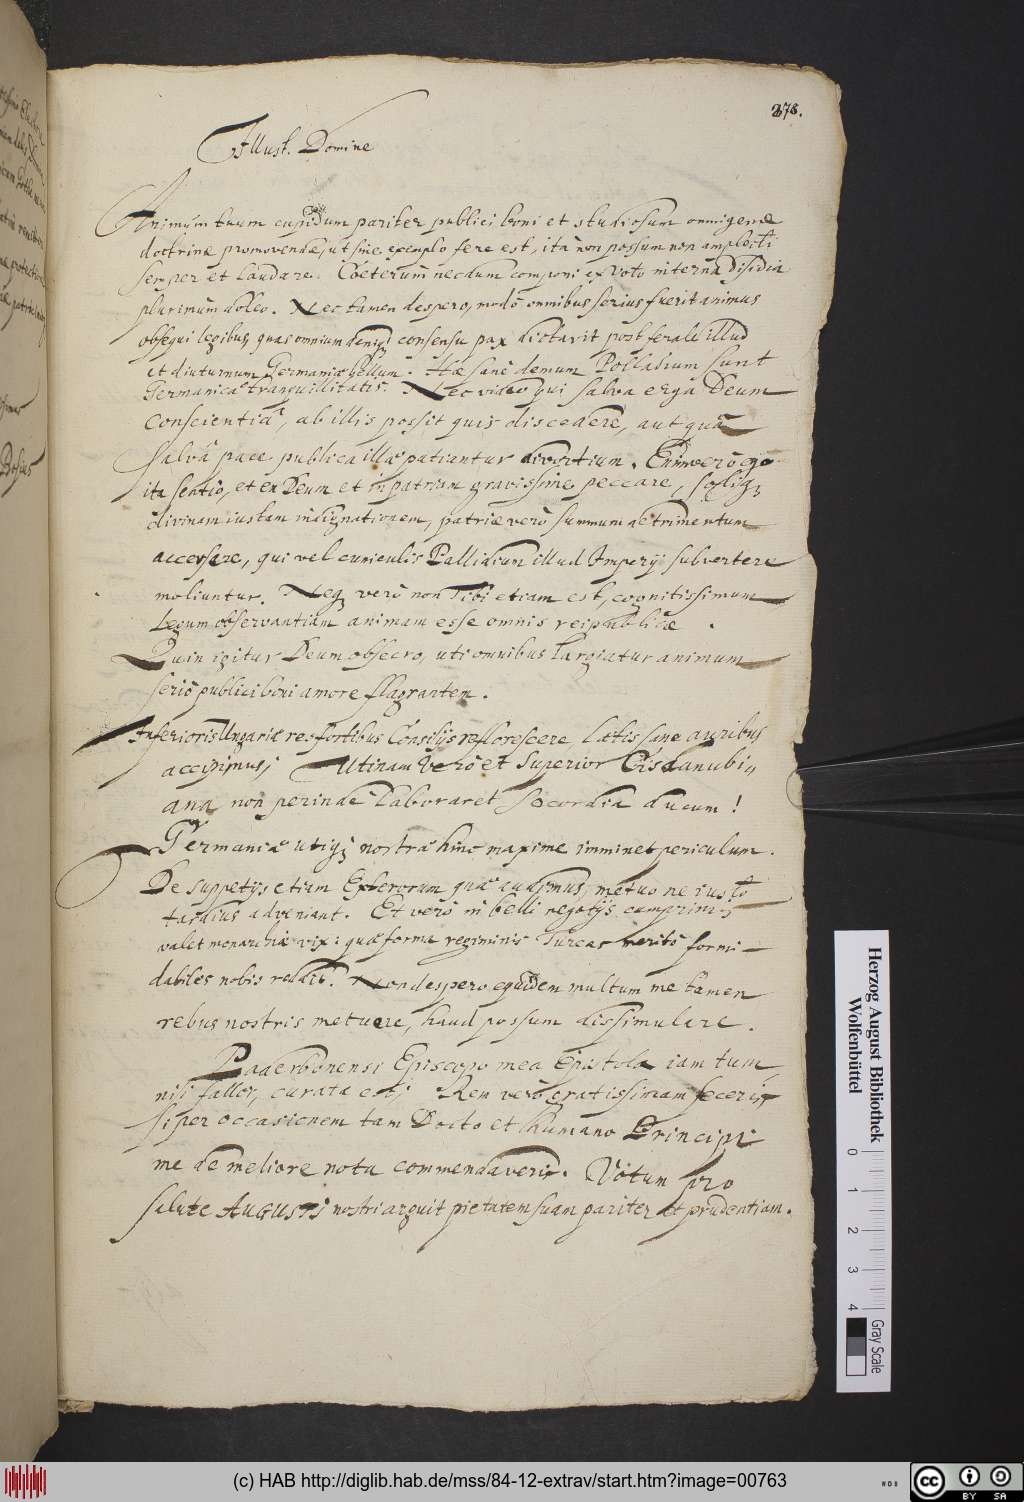 278.
Illust. Domine
Animum tuum cupidum pariter publici boni et studiosum omnigenæ
doctrinæ promovendæ, ut sine exemplo fere est, ita non possum non amplecti
semper et laudare. Cæterum necdum componi ex voto interna disidia
plurimum doleo. Nec tamen despero, modo omnibus serius fuerit animus
obsequi legibus, quas omnium deniq; consensu pax dictavit post ferale illud
et diuturnum Germaniæ bellum. Hæ sane demum Palladium sunt
Germanicæ tranquillitatis. Nec video qui salva erga Deum
conscientiâ, ab illis possit quis discedere, aut quâ
salvâ pace publica illæ patiantur divortium. Enimvero ego
ita sentio, et in Deum et in patriam gravissime peccare,
divinam iustam indignationem, patriæ verò summum detrimentum
accersere, qui vel cuniculis Palladium illud Imperij subvertere
moliuntur. Neq; verò non Tibi etiam est, cognitissimum
Legum observantiam animam esse omnis reipublicæ.
Quin igitur Deum obsecro, uti omnibus largiatur animum
seriò publici boni amore flagrantem.
Inferioris Ungariæ res fortibus Consilijs reflorescere, lætis sane auribus
accipimus; Utinam verò et superior Cisdanubi„
ana non perinde laboraret socordia ducum!
Germaniæ utiq; nostræ hinc maxime imminet periculum.
De suppetijs etiam Exterorum quæ audimus, metuo ne iusto
tardius adveniant. Et verò in belli negotijs cumprimis
valet monarchiæ vix: quæ forma regiminis Turcas meritò formi-
dabiles nobis reddit. Non despero equidem multum me tamen
rebus nostris metuere, haud possum dissimulare.
Paderbonensi Episcopo mea Epistola iam tum,
nisi fallor, curata est; Rem verò gratissimam feceris
si per occasionem tam Docto et humano Principi
me de meliore nota commendaveris. Votum pro
salute AUGUSTI nostri arguit pietatem suam pariter et prudentiam.
Herzog August Bibliothek
Wolfenbüttel
0 1 2 3 4
Gray Scale
(c) HAB http://diglib.hab.de/mss/84-12-extrav/start.htm?image=00763
cc BY SA